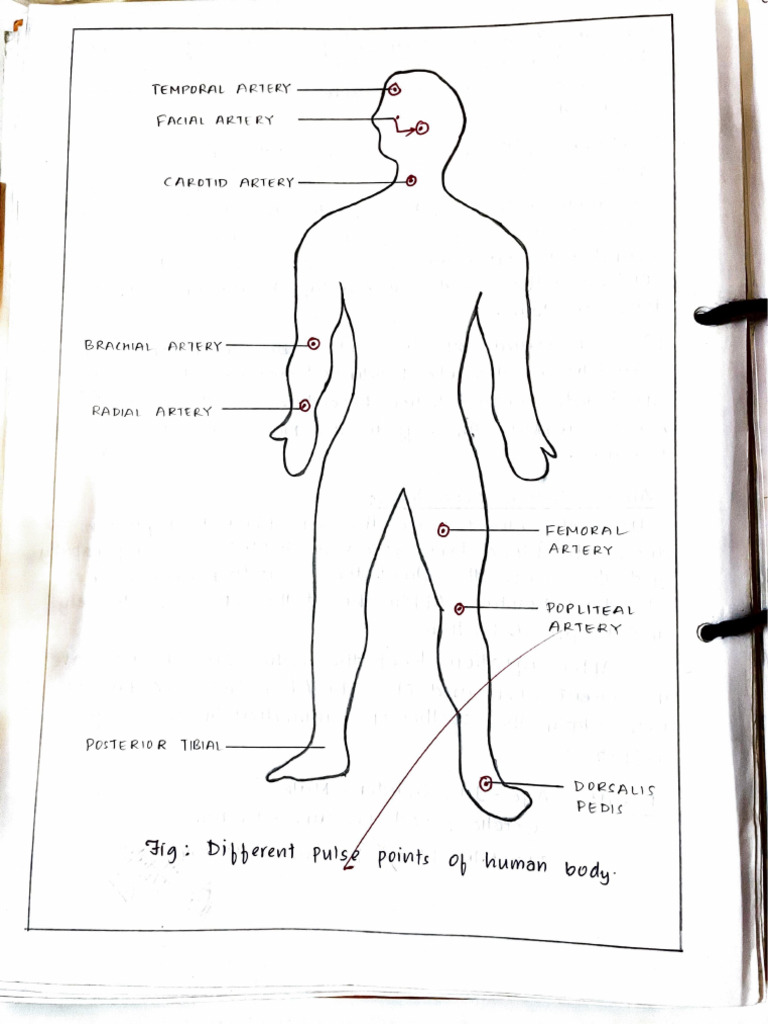 TEMPORAL ARTERY
FACIAL ARTERY
CAROTID ARTERY
BRACHIAL ARTERY
RADIAL ARTERY
FEMORAL
ARTERY
POPLITEAL
ARTERY
POSTERIOR TIBIAL
DORSALIS
PEDIS
Fig: Different pulse points of human body.